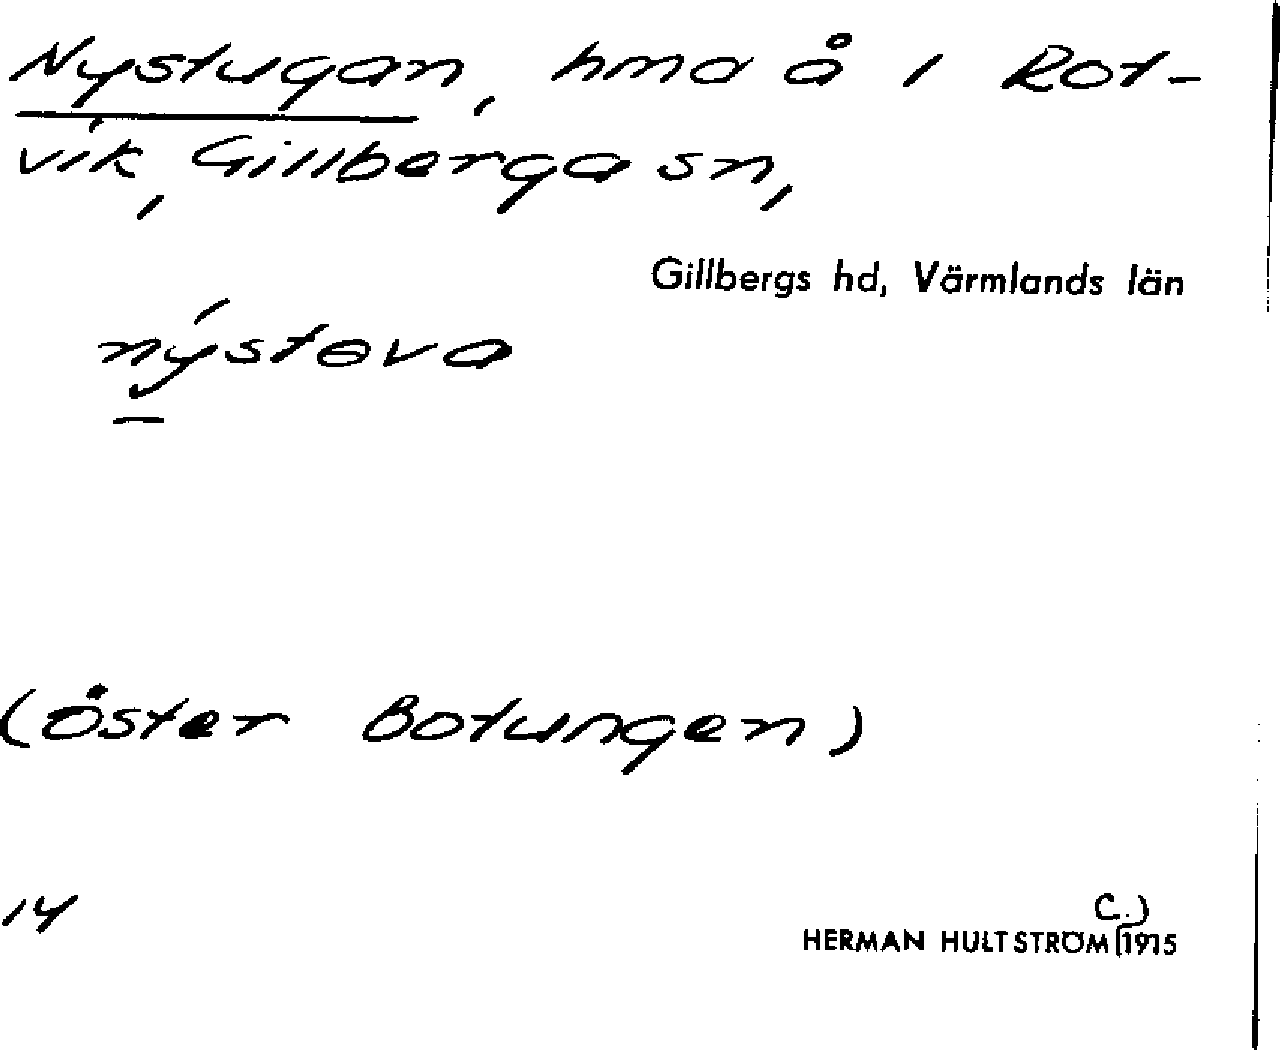 Nystugan, hmd å 1 Rot-
vik, Gillberga sn,
Gillbergs hd, Värmlands län
nýstɵva
(Öster Botungen)
14
C.)
HERMAN HULTSTRÖM 1915